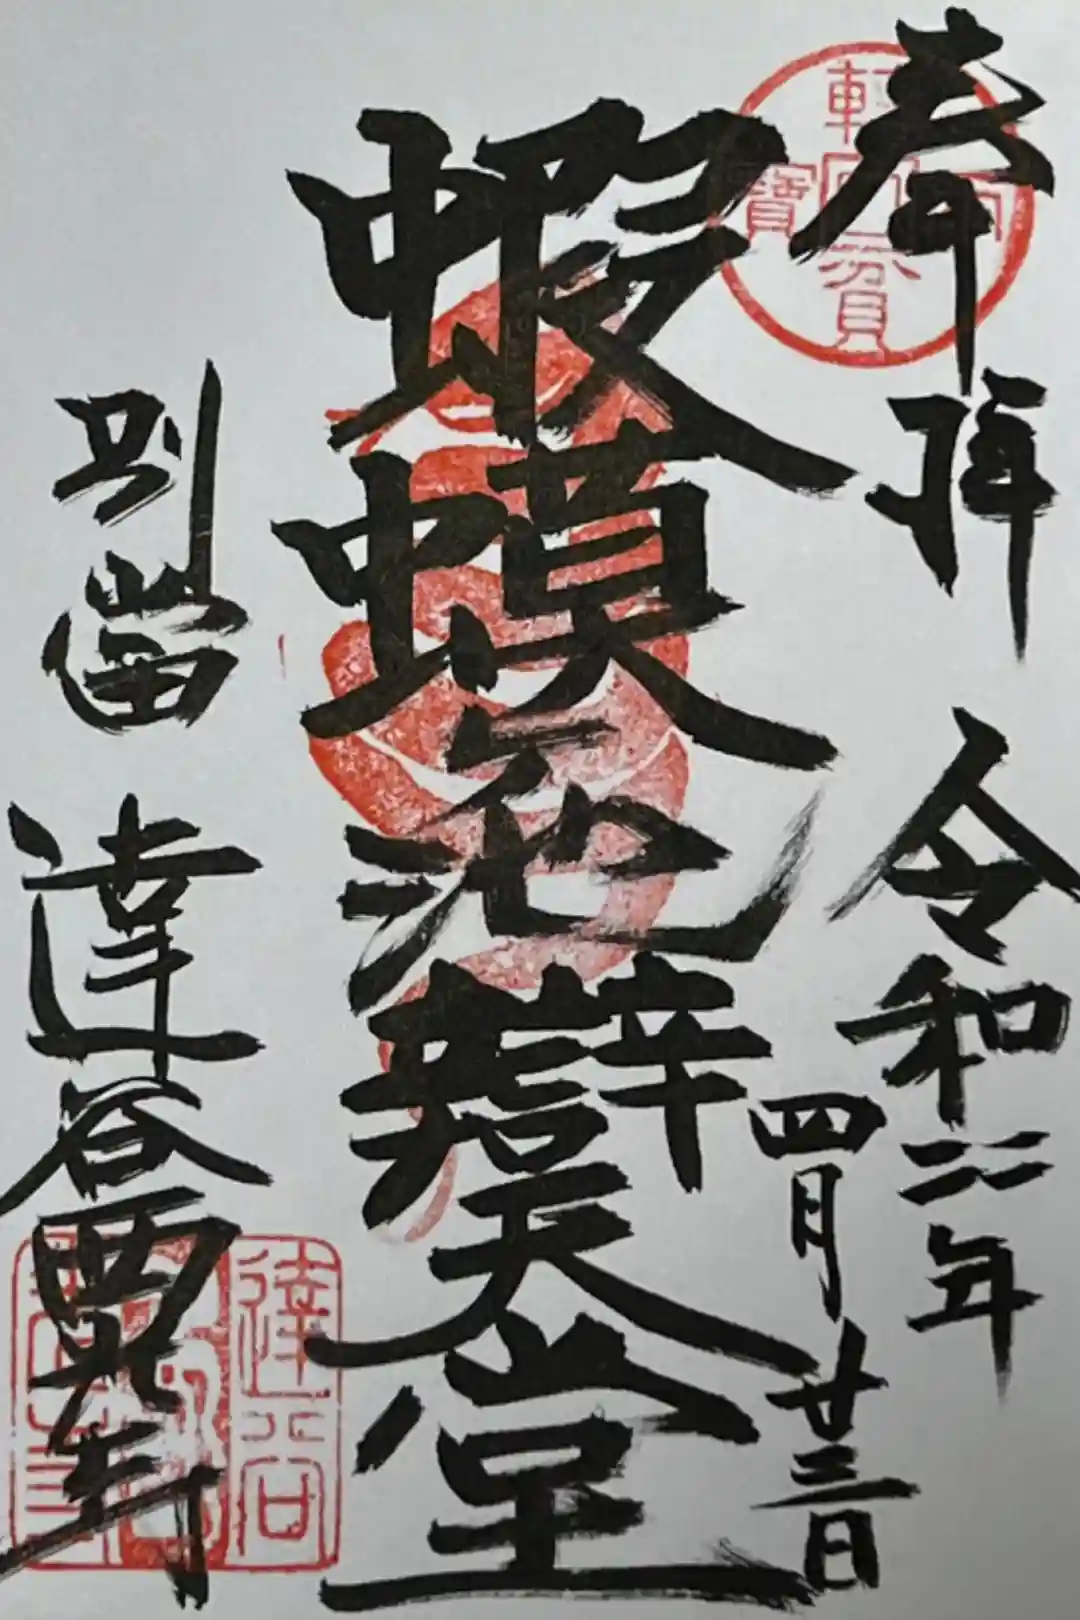 奉拝
令和六年
四月廿三日
蝦蟆池辯天堂
別當
達谷西光寺
達谷